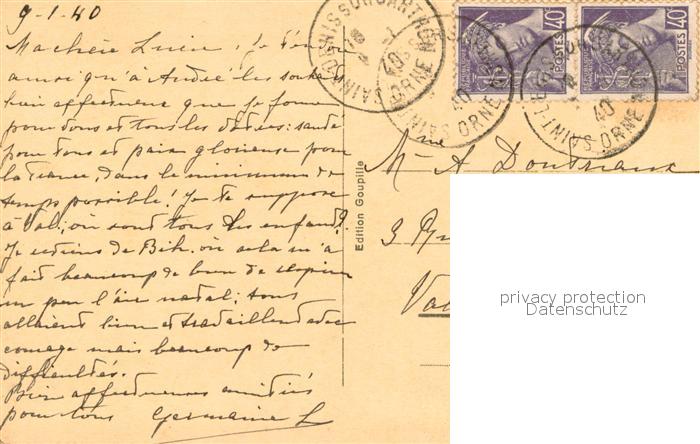 9-1-40
Ma chère Lucie, Je t'envoie
ainsi qu'à André les souhaits
bien affectueux que je forme
pour vous et tous les vôtres: santé
pour tous et paix glorieuse pour
la France, dans le minimum de
temps possible! Je te suppose
à Val; où sont tous les enfants?
Je reviens de Bih. où cela m'a
fait beaucoup de bien de respirer
un peu l'air natal; tous
allaient bien et travaillent avec
courage mais beaucoup de
difficultés.
Bien affectueuses amitiés
pour tous Germaine L
Edition Goupille
SAINT-DENIS-SUR-SARTHON
ORNE
40
POSTES
40
POSTES
40
SAINT-DENIS
ORNE
40
SAINT-DENIS
ORNE
40
Mme A
3
privacy protection
Datenschutz